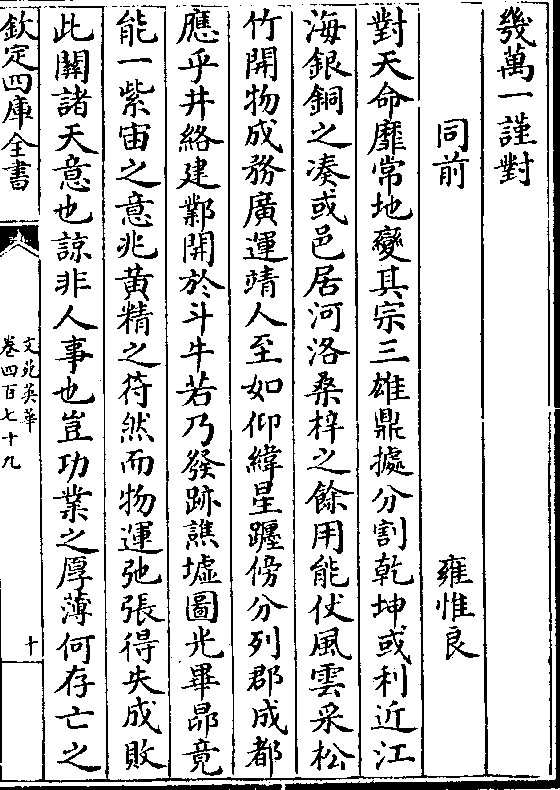 幾萬一謹對
同前　雍惟良
對天命靡常地變其宗三雄鼎據分割乾坤或利近江
海銀銅之湊或邑居河洛桑梓之餘用能伏風雲采松
竹開物成務廣運靖人至如仰緯星躔傍分列郡成都
應乎井絡建鄴開於斗牛若乃發跡譙墟圖光畢昴竟
能一紫宙之意兆黃精之符然而物運弛張得失成敗
此關諸天意也諒非人事也豈功業之厚薄何存亡之
欽定四庫全書
文苑英華
卷四百七十九
十